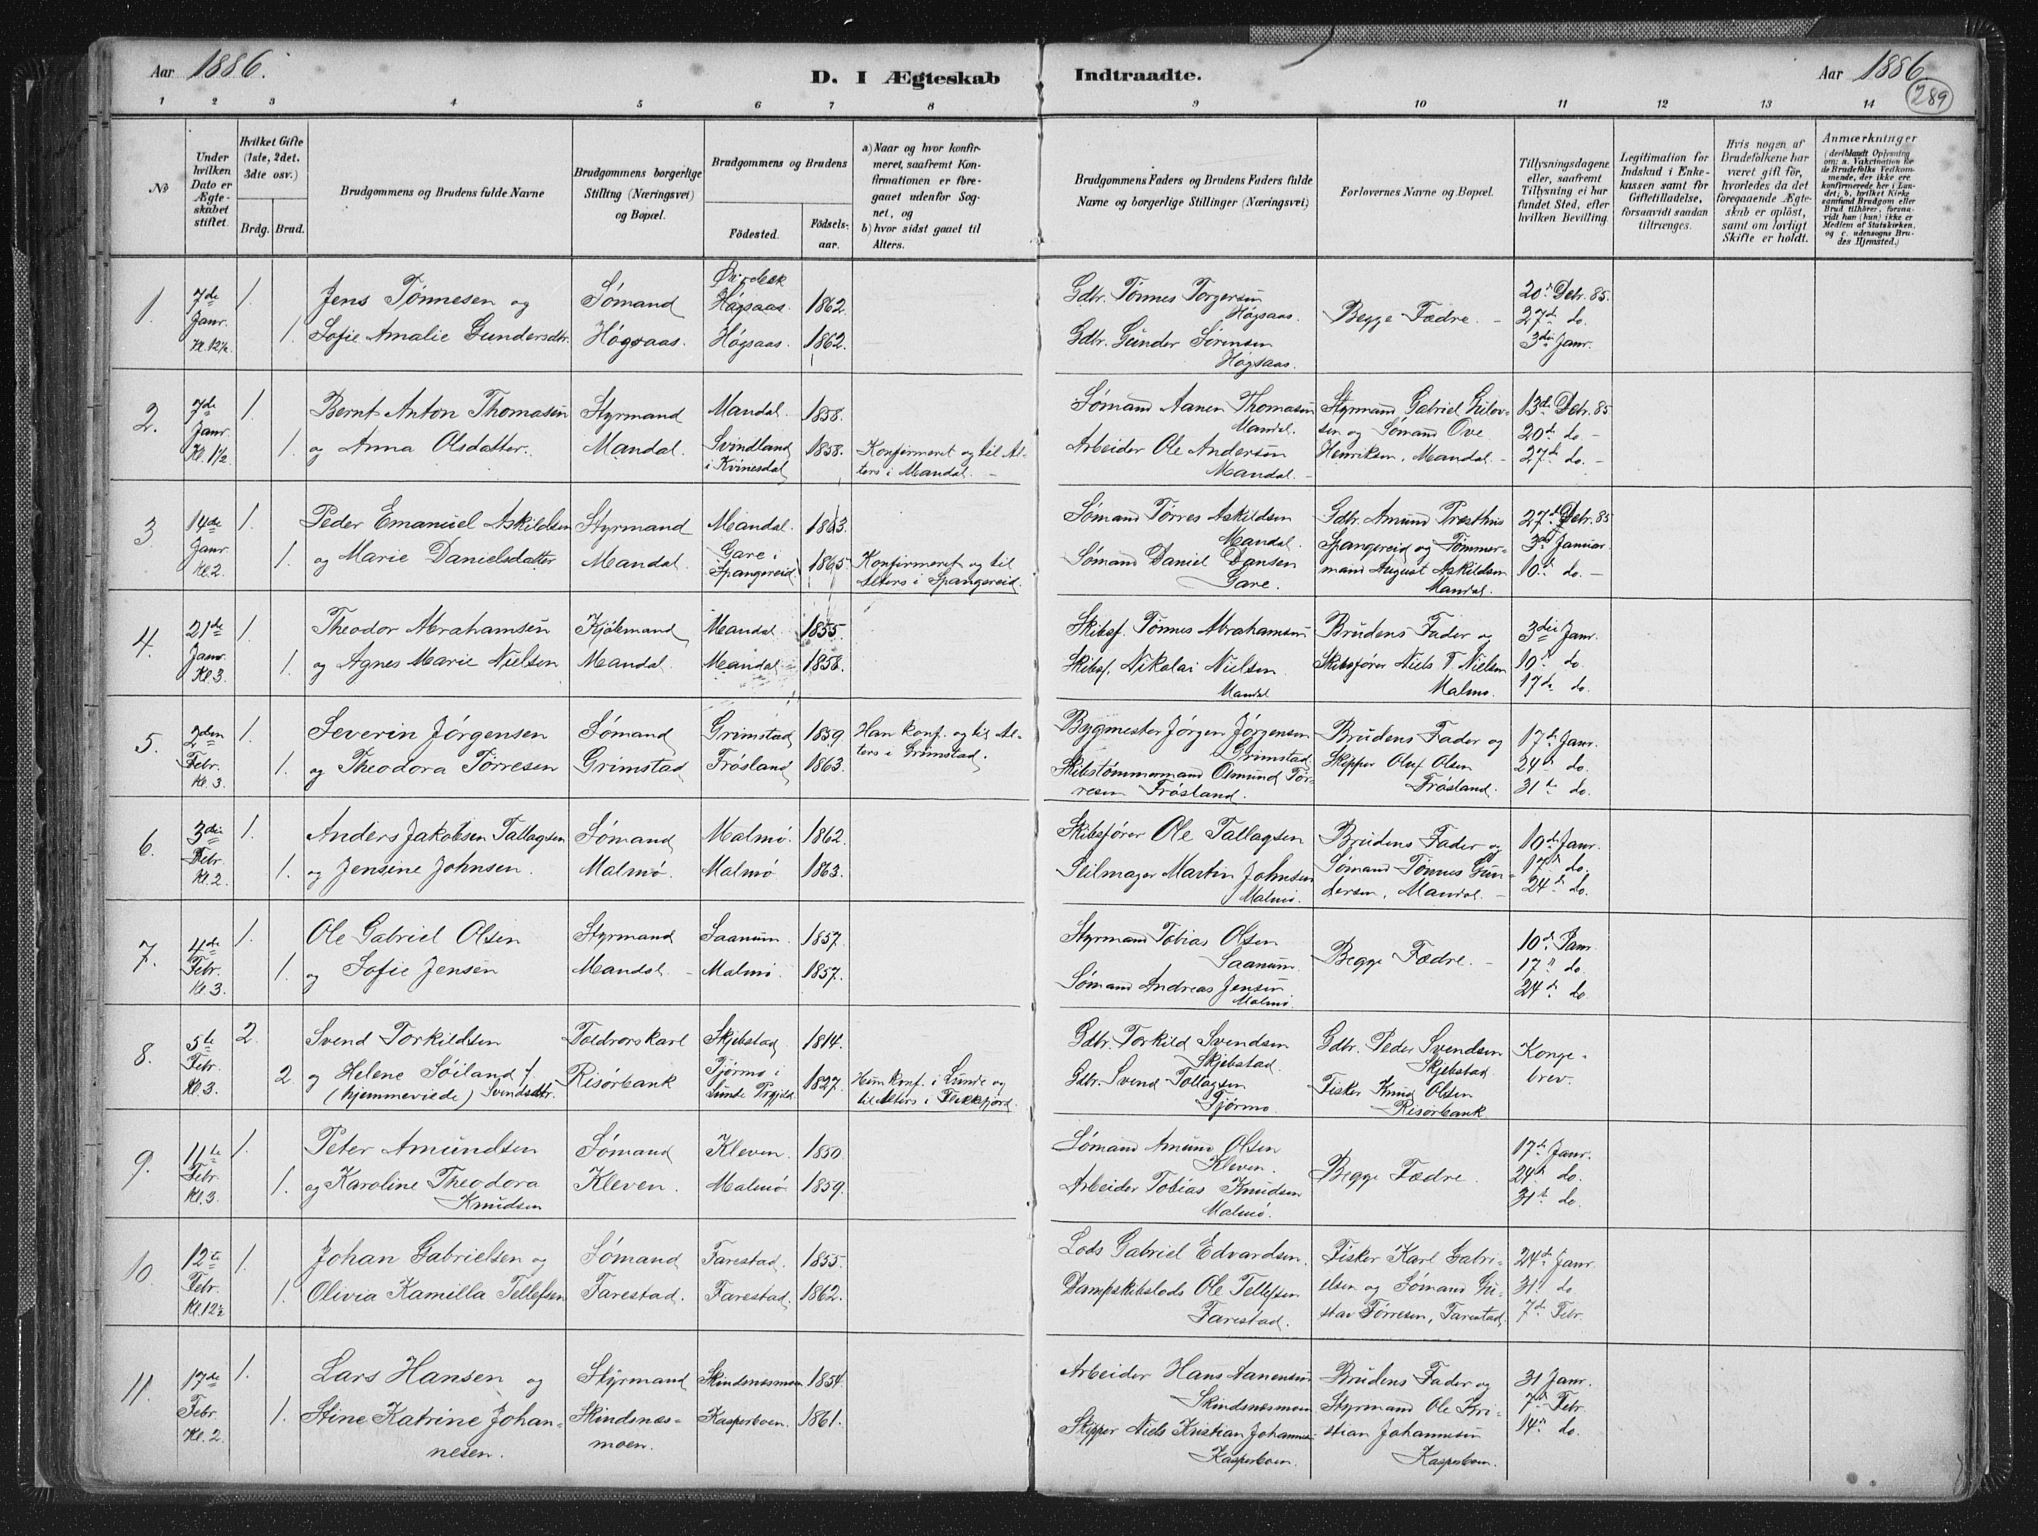 Aar 1886.
D. I Ægteskab Indtraadte.
Aar 1886.
289
1 2 3 4 5 6 7 8 9 10 11 12 13 14
No
Under hvilken Dato er Ægteskabet stiftet.
Hvilket Gifte (1ste, 2det. 3die osv.)
Brdg. Brud.
Brudgommens og Brudens fulde Navne
Brudgommens borgerlige Stilling (Næringsvei) og Bopæl.
Brudgommens og Brudens
Födested.
Födselsaar.
a) Naar og hvor konfirmeret, saafremt Konfirmationen er foregaaet udenfor Sognet, og
b) hvor sidst gaaet til Alters.
Brudgommens Faders og Brudens Faders fulde Navne og borgerlige Stillinger (Næringsvei)
Forlovernes Navne og Bopæl.
Tillysningsdagene eller, saafremt Tillysning ei har fundet Sted, efter hvilken Bevilling.
Legitimation for Indskud i Enkekassen samt for Giftetilladelse, forsaavidt saadan tiltrænges.
Hvis nogen af Brudefolkene har været gift för, hvorledes da det foregaaende Ægteskab er oplöst, samt om lovligt Skifte er holdt.
Anmærkninger
(deriblandt Oplysning om: a. Vakcination for de Brudefolks Vedkommende, der ikke ere konfirmerede her i Landet; b. hvilket Kirkesamfund Brudgom eller Brud tilhörer, forsaavidt han (hun) ikke er Medlem af Statskirken, og c. udensogns Brudes Hjemsted.)
1. 7de Janr. Kl. 12½ 1. 1.
Jens Tönnesen og
Sofie Amalie Gundersdtr.
Sömand
Högsaas.
Högsaas. 1862.
Högsaas. 1862.
Gdbr. Tönnes Torgersen
Högsaas.
Gdbr. Gunder Sörensen
Högsaas.
Begge Fædre. –
20de Decbr. 85.
27de do.
3die Janr.
2. 7de Janr. Kl. 1½ 1. 1.
Bernt Anton Thomasen
og Anna Olsdatter.
Styrmand
Mandal.
Mandal. 1858.
Svindland
i Kvinesdal 1858.
Konfirmeret og til Al-
ters i Mandal. –
Sömand Aanen Thomasen
Mandal.
Arbeider Ole Andersen
Mandal.
Styrmand Gabriel Gulov-
sen og Sömand Ove
Henriksen, Mandal. –
13de Decbr. 85
20de do. –
27de do. –
3. 14de Janr. Kl. 2. 1. 1.
Peder Emanuel Askildsen
og Marie Danielsdatter
Styrmand
Mandal.
Mandal. 1863.
Gare i
Spangereid 1865.
Konfirmeret og til
Alters i Spangereid.
Sömand Törres Askildsen
Mandal.
Sömand Daniel Dansen
Gare.
Gdbr. Amund Præsthus
Spangereid og Tömmer-
mand August Askildsen
Mandal.
27de Decbr. 85
3die Januar
10de do. –
4. 21de Janr. Kl. 3. 1. 1.
Theodor Abrahamsen
og Agnes Marie Nielsen
Kjöbmand
Mandal.
Mandal. 1855.
Mandal. 1858.
Skibsf. Tönnes Abrahamsen
Skibsf. Nikolai Nielsen
Mandal
Brudens Fader og
Skibsförer Niels T. Nielsen
Malmö.
3die Janr.
10de do.
17de do.
5. 2den Febr. Kl. 3. 1. 1.
Severin Jörgensen
og Theodora Törresen
Sömand
Grimstad
Grimstad 1859.
Frösland 1863.
Han konf. og til Al-
ters i Grimstad.
Bygmester Jörgen Jörgensen
Grimstad
Skibstömmermand Osmund Tör-
resen Frösland.
Brudens Fader og
Skipper Oluf Olsen
Frösland.
17de Janr.
24de do.
31te do.
6. 3die Febr. Kl. 2. 1. 1.
Anders Jakobsen Tallagsen
og Jensine Johnsen.
Sömand
Malmö.
Malmö. 1862.
Malmö 1863.
Skibsförer Ole Tallagsen
Seilmager Martin Johnsen
Malmö.
Brudens Fader og
Sömand Tönnes Gun-
dersen, Mandal. –
10de Janr.
17de do.
24de do.
7. 4de Febr. Kl. 3. 1. 1.
Ole Gabriel Olsen
og Sofie Jensen
Styrmand
Mandal. –
Saanum. 1857.
Malmö. 1857.
Styrmand Tobias Olsen
Saanum.
Sömand Andreas Jensen
Malmö.
Begge Fædre. –
10de Janr
17" do.
24de do.
8. 5te Febr. Kl. 3. 2. 2.
Svend Torkildsen
og Helene Söiland f.
(hjemmeviede) Svendsdtr.
Toldrorskarl
Risörbank
Skjebstad 1814.
Tjörmo i
Lunde Prgjld. 1827.
Hun konf. i Lunde og
til Alters i Flekkefjord.
Gdbr. Torkild Svendsen
Skjebstad.
Gdbr. Svend Tollagsen
Tjörmo.
Gdbr. Peder Svendsen
Skjebstad.
Fisker Knud Olsen
Risörbank
Konge-
brev.
9. 11te Febr. Kl. 3. 1. 1.
Peter Amundsen
og Karoline Theodora
Knudsen
Sömand
Kleven.
Kleven. 1850.
Malmö. 1859.
Sömand Amund Olsen
Kleven.
Arbeider Tobias Knudsen
Malmö.
Begge Fædre.
17de Janr.
24de do.
31te do.
10. 12te Febr. Kl. 12½ 1. 1.
Johan Gabrielsen og
Olivia Kamilla Tellefsen
Sömand
Farestad.
Farestad. 1855.
Farestad. 1862.
Lods Gabriel Edvardsen.
Dampskibslods Ole Tellefsen
Farestad.
Fisker Karl Gabri-
elsen og Sömand Gu-
stav Törresen, Farestad.
24de Janr.
31te do
7de Febr.
11. 17de Febr. Kl. 2 1. 1.
Lars Hansen og
Stine Katrine Johan-
nesen.
Styrmand
Skindsnæs-
moen.
Skindsnæsmoen 1854.
Kasperboen. 1861.
Arbeider Hans Aanensen
Skindsnæsmoen
Skipper Niels Kristian Johannesen
Kasperboen.
Brudens Fader og
Styrmand Ole Kri-
stian Johannesen
Kasperboen.
31 Janr.
7de Febr.
14de do.